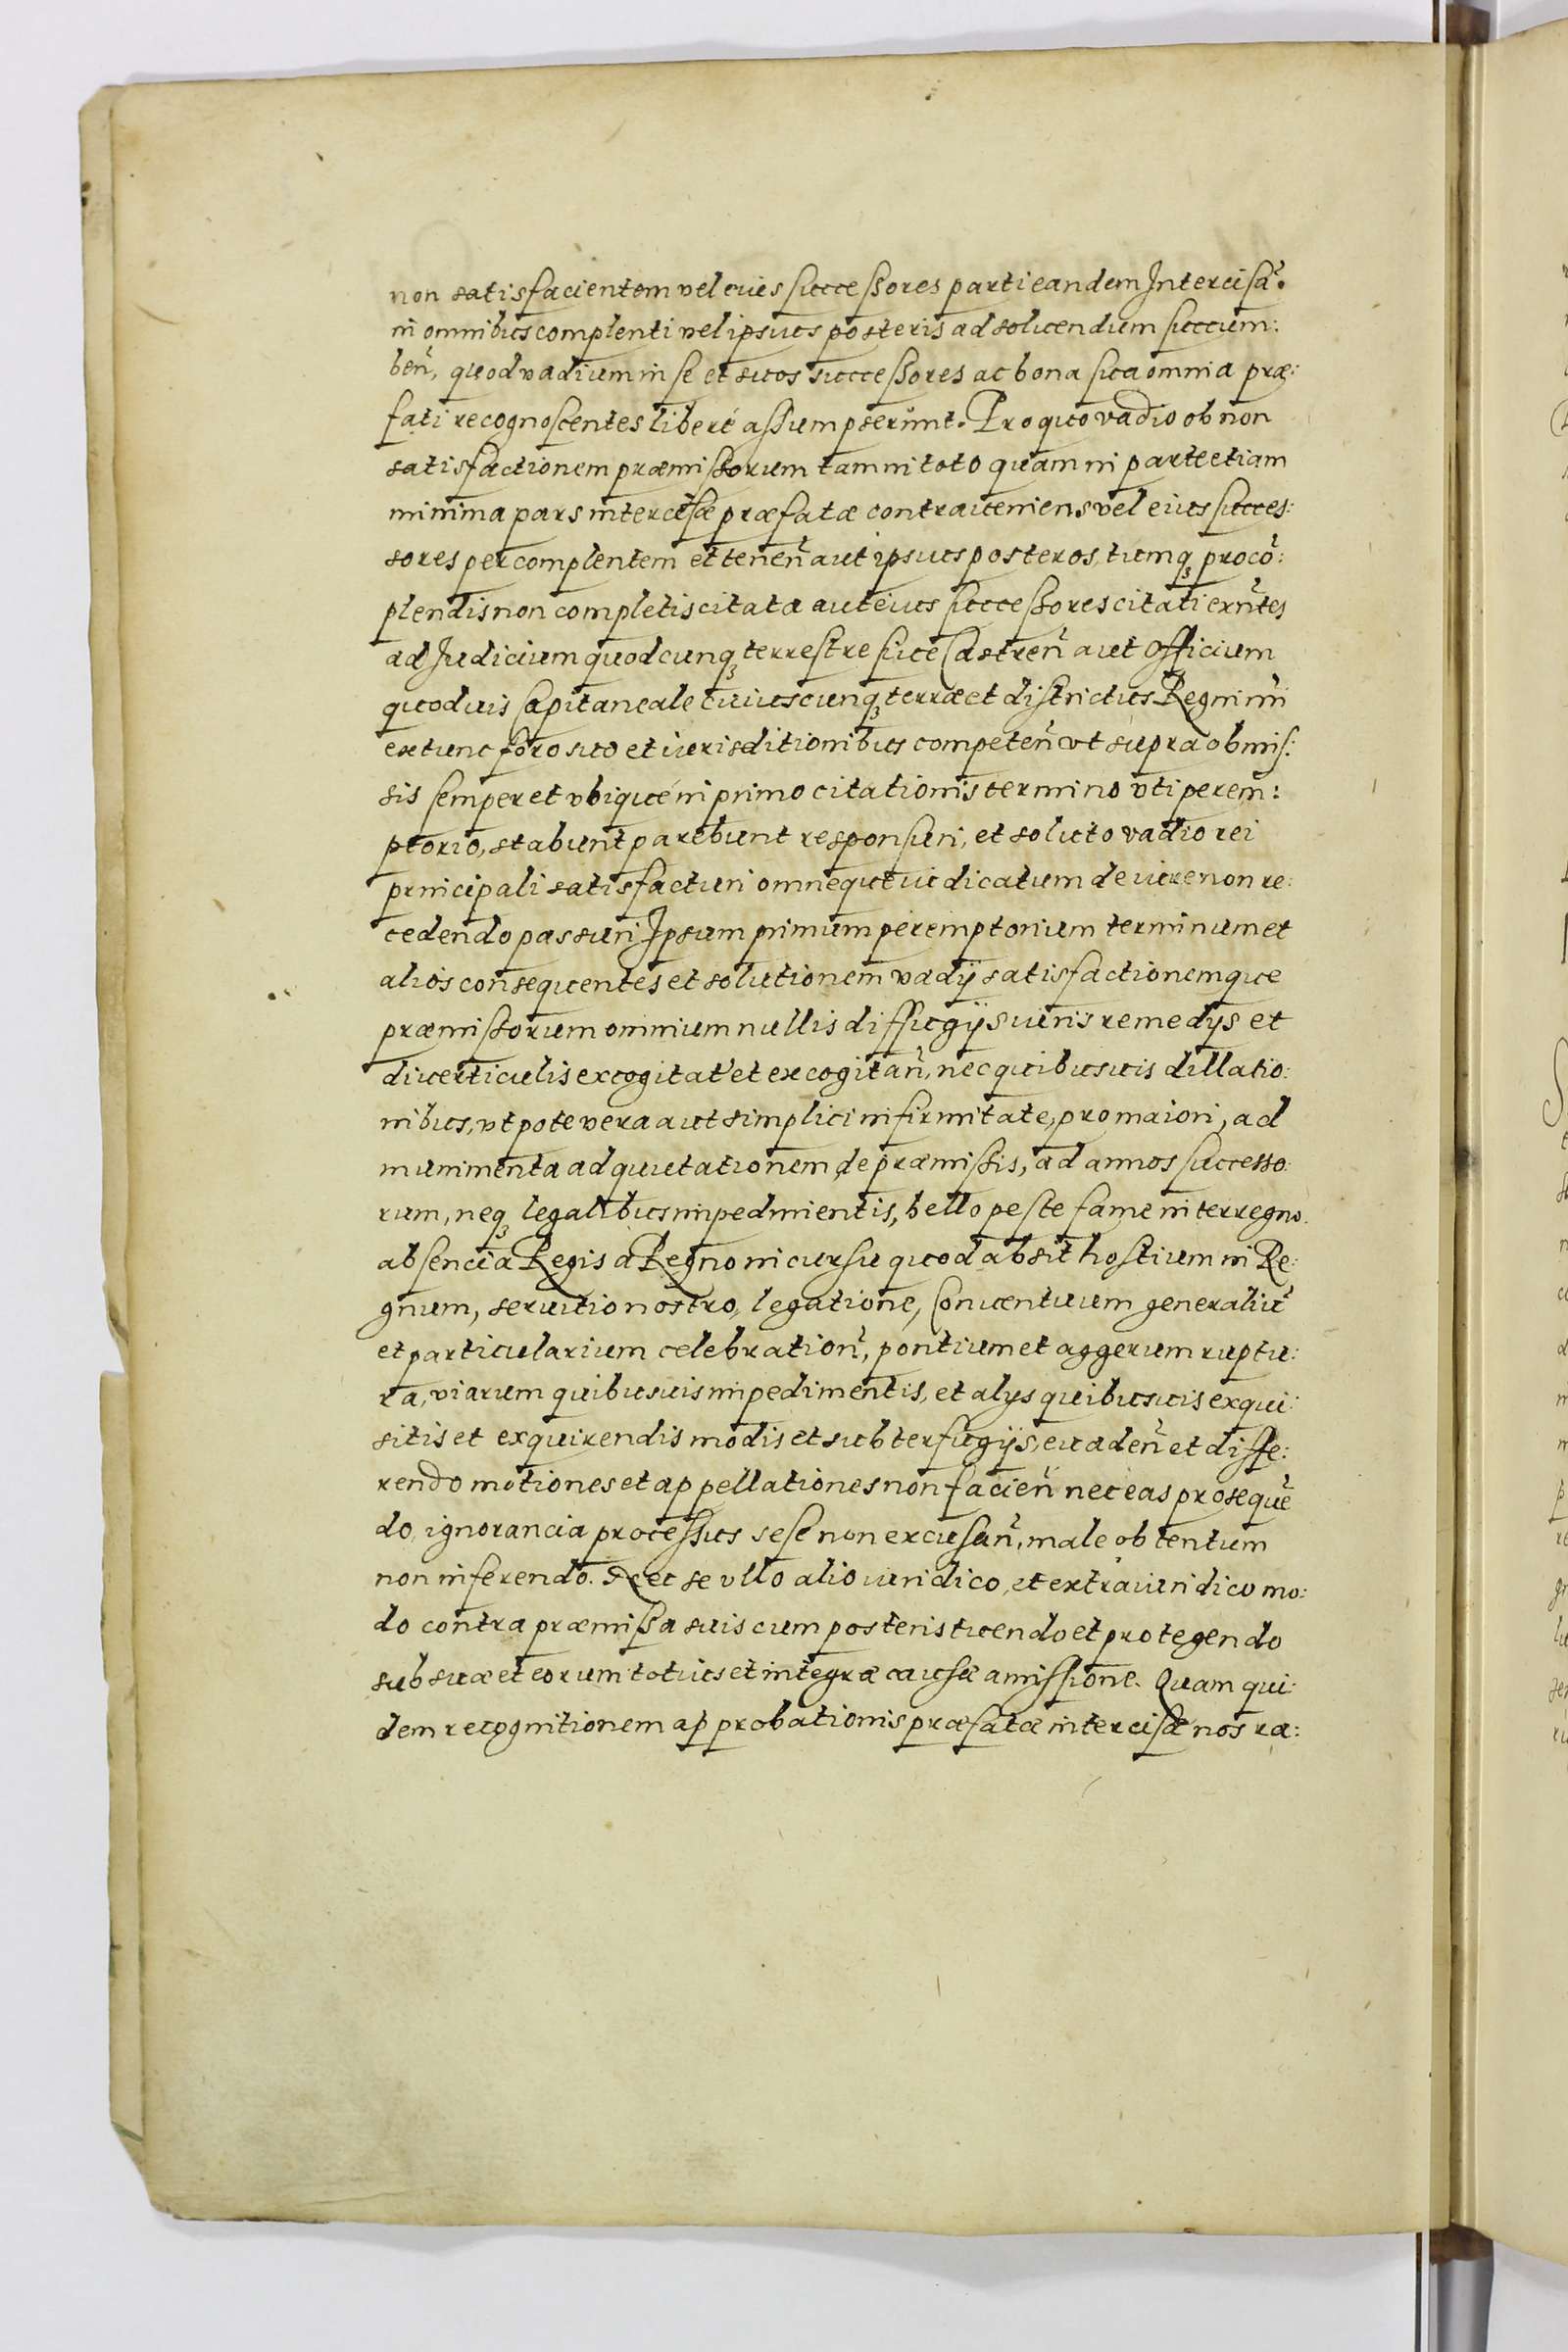 non satisfacientem vel eius successores parti eandem Intercisã
in omnibus complenti vel ipsius posteris ad soluendum succum:
beñ, quod vadium in se et suos successores ac bona sua omnia præ:
fati recognoscentes liberé assumpserunt. Pro quo vadio ob non
satisfactionem præmissorum tam in toto quam in parte etiam
minima pars intercisæ præfatæ contraueniens vel eius succes:
sores per complentem et teneñ aut ipsius posteros, tumq₃ pro cõ:
plendis non completis citata aut eius successores citati exñtes
ad Judicium quodcunq₃ terrestre siue Castreñ aut Officium
quoduis Capitaneale cuiuscunq₃ terræ et districtus Regni nr̃i
extunc foro suo et iurisditionibus competeñ vt supra obmis:
sis semper et vbique in primo citationis termino vti perem:
ptorio, stabunt parebunt responsuri, et soluto vadio rei
principali satisfacturi omneque iudicatum de iure non re:
cedendo passuri Ipsum primum peremptorium terminum et
alios consequentes et solutionem vadij satisfactionemque
præmissorum omnium nullis diffugijs iuris remedijs et
diuerticulis excogitat̃ et excogitañ, nec quibusuis dillatio:
nibus, vt pote vera aut simplici infirmitate, pro maiori, ad
munimenta ad quietationem de præmissis, ad annos successo:
rum, neq₃ legalibus impedimentis, bello peste fame interregno
absencia Regis a Regno incursu quod absit hostium in Re:
gnum, seruitio nostro, legatione, Conuentuum generaliũ
et particularium celebratioñ, pontium et aggerum ruptu:
ra, viarum quibusuis impedimentis, et alijs quibusuis exqui:
sitis et exquirendis modis et subterfugijs, euadeñ et diffe:
rendo motiones et appellationes non facieñ nec eas prosequẽ
do, ignorancia processus sese non excusañ, male obtentum
non inferendo. Nec se vllo alio iuridico, et extraiuridico mo:
do contra præmissa suis cum posteris tuendo et protegendo
sub suæ et eorum totius et integræ causæ amissione. Quam qui:
dem recognitionem approbationis præfatæ intercisæ nos ra: